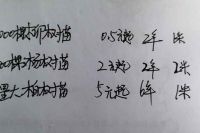 00棵柳树苗 0.5元起 2年 1米
00棵杨树苗 2元起 2年 2米
量大杨树苗 5元起 6年 1米